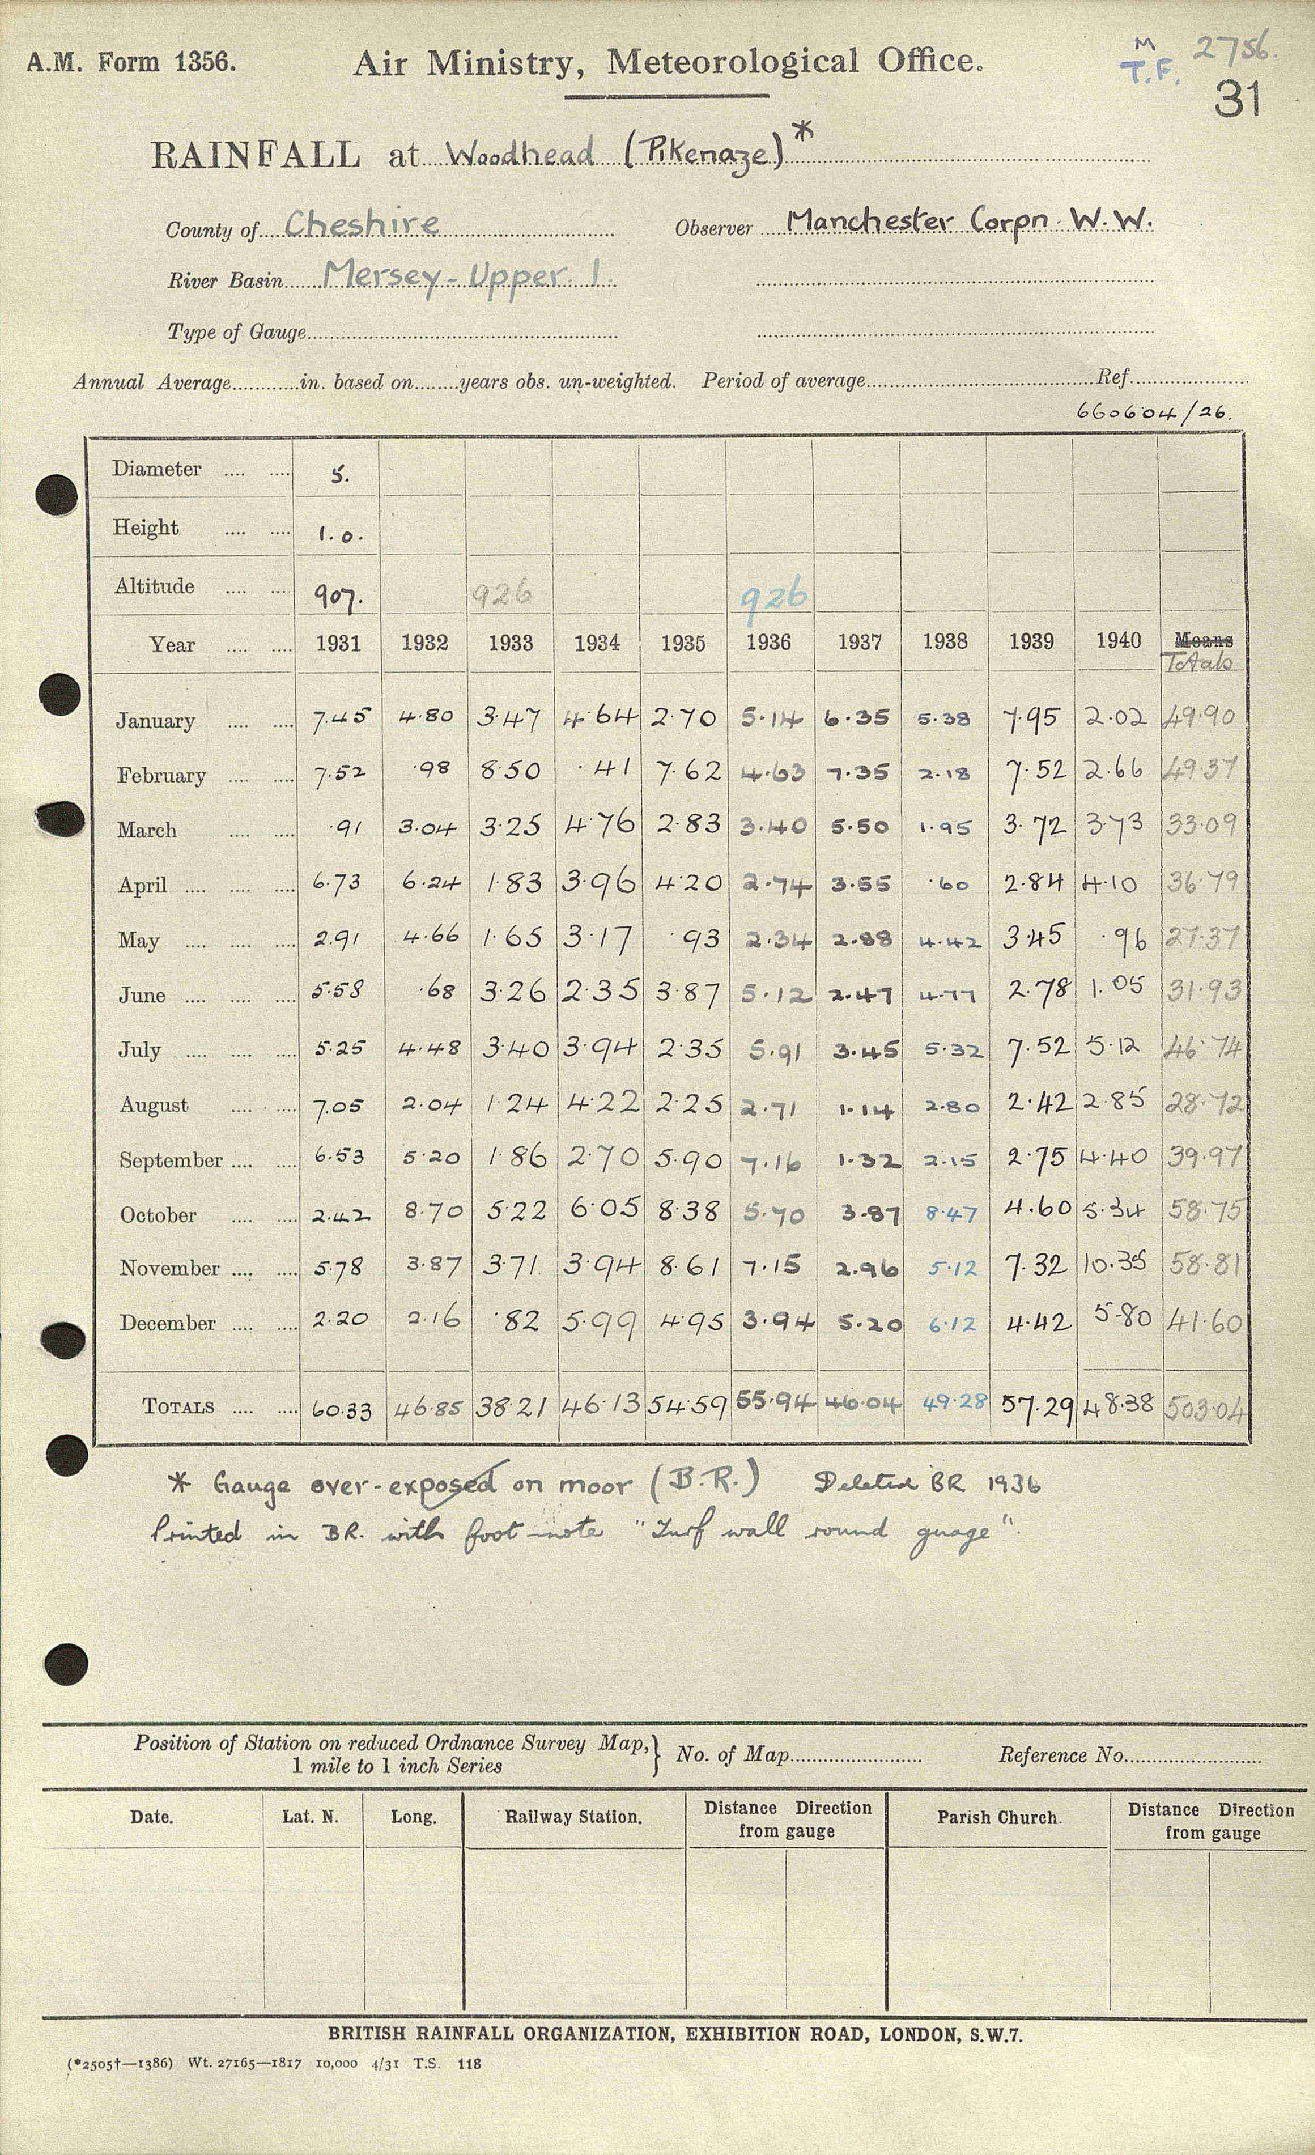 A.M. Form 1356.
Air Ministry, Meteorological Office.
M 2756.
T.F.
31
RAINFALL at Woodhead (Pikenaze)*
County of Cheshire Observer Manchester Corpn. W.W.
River Basin Mersey - Upper 1.
Type of Gauge
Annual Average in. based on years obs. un-weighted. Period of average Ref.
660604/26.
Diameter 5.
Height 1.0.
Altitude 907. 926 926
Year 1931 1932 1933 1934 1935 1936 1937 1938 1939 1940 Means
Totals
January 7.45 4.80 3.47 4.64 2.70 5.14 6.35 5.38 7.95 2.02 49.90
February 7.52 .98 8.50 .41 7.62 4.63 7.35 2.18 7.52 2.66 49.37
March .91 3.04 3.25 4.76 2.83 3.40 5.50 1.95 3.72 3.73 33.09
April 6.73 6.24 1.83 3.96 4.20 2.74 3.55 .60 2.84 4.10 36.79
May 2.91 4.66 1.65 3.17 .93 2.34 2.88 4.42 3.45 .96 27.37
June 5.58 .68 3.26 2.35 3.87 5.12 2.47 4.77 2.78 1.05 31.93
July 5.25 4.48 3.40 3.94 2.35 5.91 3.45 5.32 7.52 5.12 46.74
August 7.05 2.04 1.24 4.22 2.25 2.71 1.14 2.80 2.42 2.85 28.72
September 6.53 5.20 1.86 2.70 5.90 7.16 1.32 2.15 2.75 4.40 39.97
October 2.42 8.70 5.22 6.05 8.38 5.70 3.87 8.47 4.60 5.34 58.75
November 5.78 3.87 3.71 3.94 8.61 7.15 2.96 5.12 7.32 10.35 58.81
December 2.20 2.16 .82 5.99 4.95 3.94 5.20 6.12 4.42 5.80 41.60
TOTALS 60.33 46.85 38.21 46.13 54.59 55.94 46.04 49.28 57.29 48.38 503.04
* Gauge over-exposed on moor (B.R.) Deleted BR 1936
Printed in BR. with foot-note "Turf wall round guage"
Position of Station on reduced Ordnance Survey Map, } No. of Map Reference No.
1 mile to 1 inch Series
Date. Lat. N. Long. Railway Station. Distance Direction Parish Church. Distance Direction
from gauge from gauge
BRITISH RAINFALL ORGANIZATION, EXHIBITION ROAD, LONDON, S.W.7.
(*2505†—1386) Wt. 27165—1817 10,000 4/31 T.S. 118